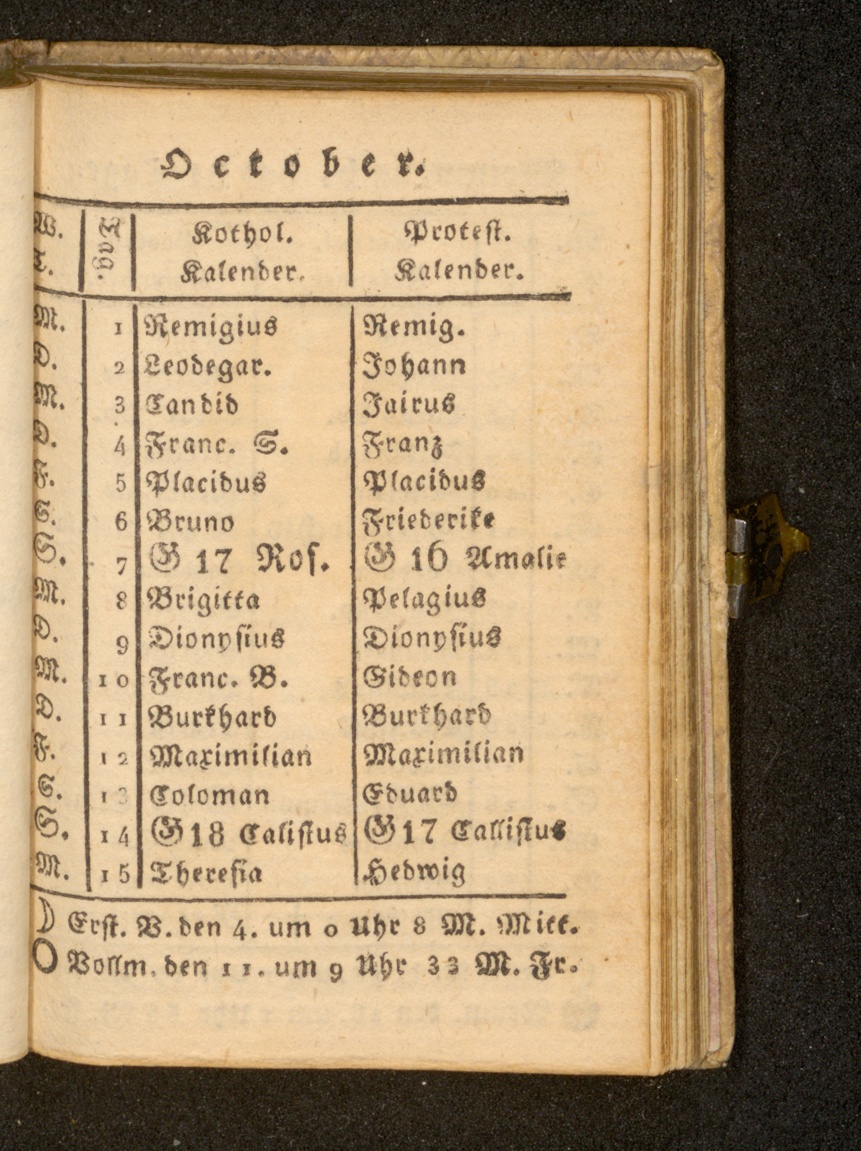 October.
W. Tag. Kothol. Protest.
T. Kalender. Kalender.
M. 1 Remigius Remig.
D. 2 Leodegar. Johann
M. 3 Candid Jairus
D. 4 Franc. S. Franz
F. 5 Placidus Placidus
S. 6 Bruno Friederike
S. 7 G 17 Ros. G 16 Amalie
M. 8 Brigitta Pelagius
D. 9 Dionysius Dionysius
M. 10 Franc. B. Gideon
D. 11 Burkhard Burkhard
F. 12 Maximilian Maximilian
S. 13 Coloman Eduard
S. 14 G 18 Calistus G 17 Callistus
M. 15 Theresia Hedwig
☽ Erst. V. den 4. um 0 Uhr 8 M. Mitt.
○ Vollm. den 11. um 9 Uhr 33 M. Fr.